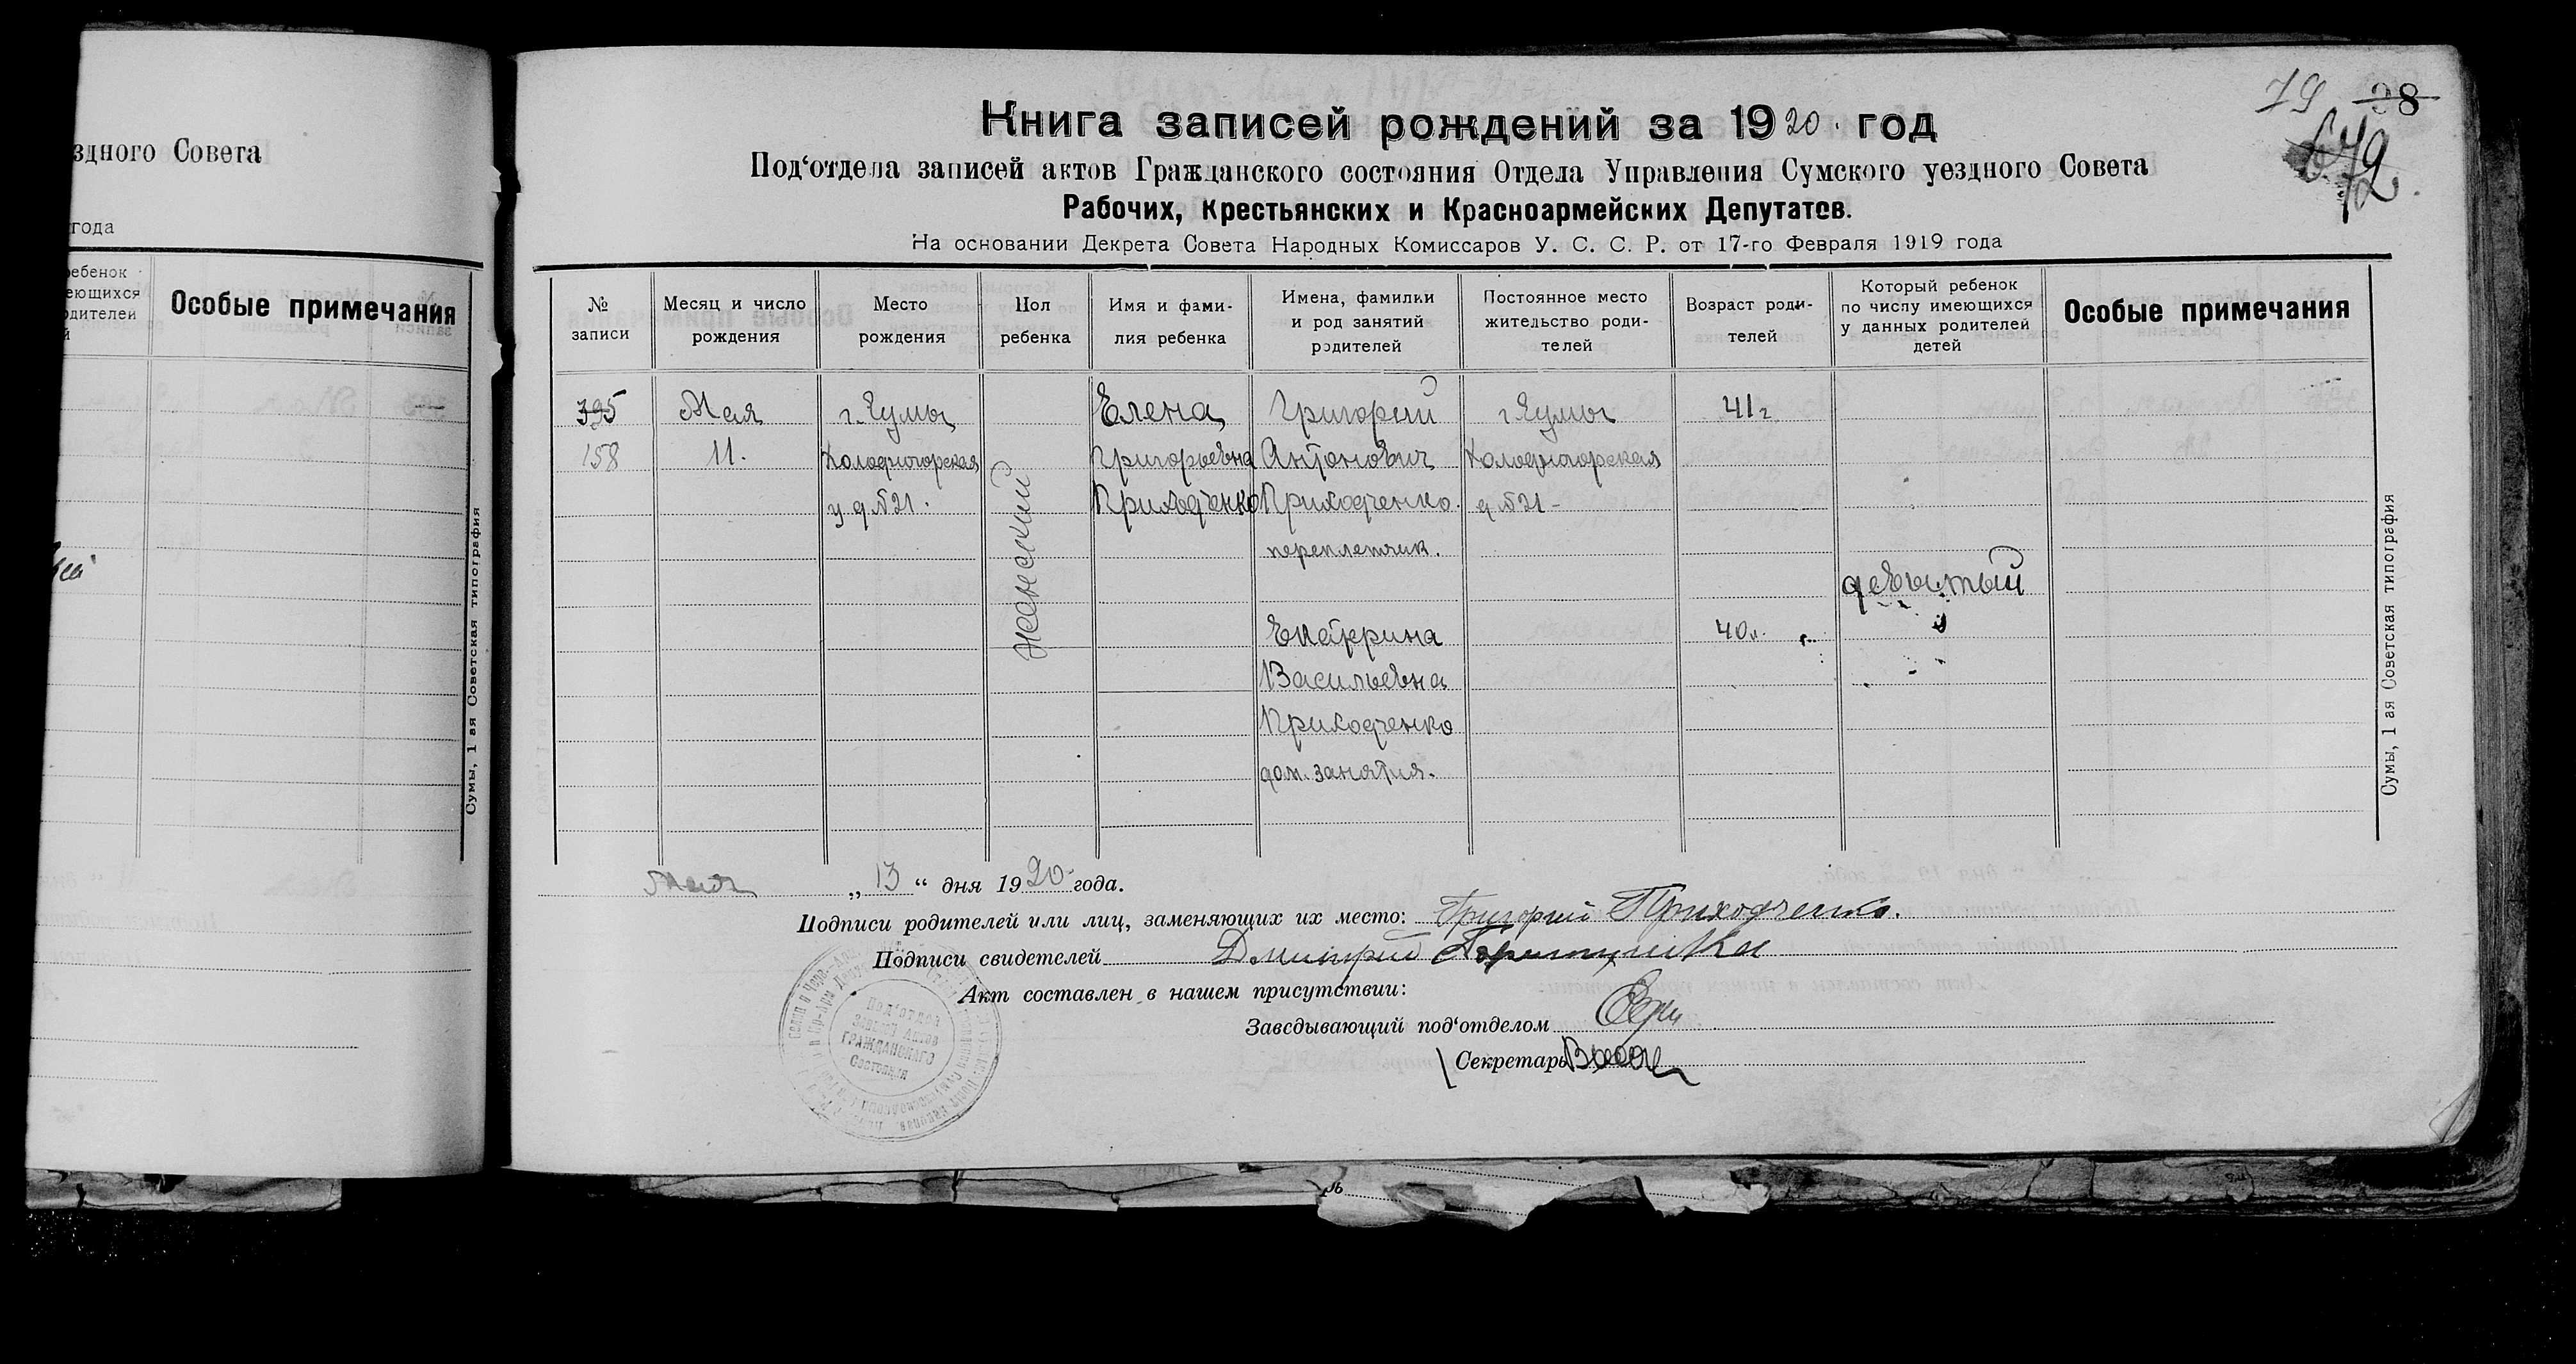 здного Совета
года
ребенок
еющихся
одителей
й
Особые примечания
Сумы, 1 ая Советская типография
79 98
72
Книга записей рождений за 1920 год
Под‘отдела записей актов Гражданского состояния Отдела Управления Сумского уездного Совета
Рабочих, Крестьянских и Красноармейских Депутатов.
На основании Декрета Совета Народных Комиссаров У. С. С. Р. от 17-го Февраля 1919 года
№ записи
Месяц и число рождения
Место рождения
Пол ребенка
Имя и фами-
лия ребенка
Имена, фамилии
и род занятий
родителей
Постоянное место
жительство роди-
телей
Возраст роди-
телей
Который ребенок
по числу имеющихся
у данных родителей
детей
Особые примечания
395 Мая г. Сумы Елена Григорий г. Сумы 41 г.
158 11. Холодногорская Григорьевна Антонович Холодногорская
у д №21. Приходченко Приходченко. д №21-
женский
переплетчик.
девятый
Екатерина 40 л.
Васильевна
Приходченко
дом. занятия.
Сумы, 1 ая Советская типография
Мая „13“ дня 1920 года.
Подписи родителей или лиц, заменяющих их место: Григорий Приходченко.
Подписи свидетелей Дмитрий
Акт составлен в нашем присутствии:
Заведывающий под‘отделом
Секретарь
Под‘отдел
Записей Актов
Гражданскаго
Состояния